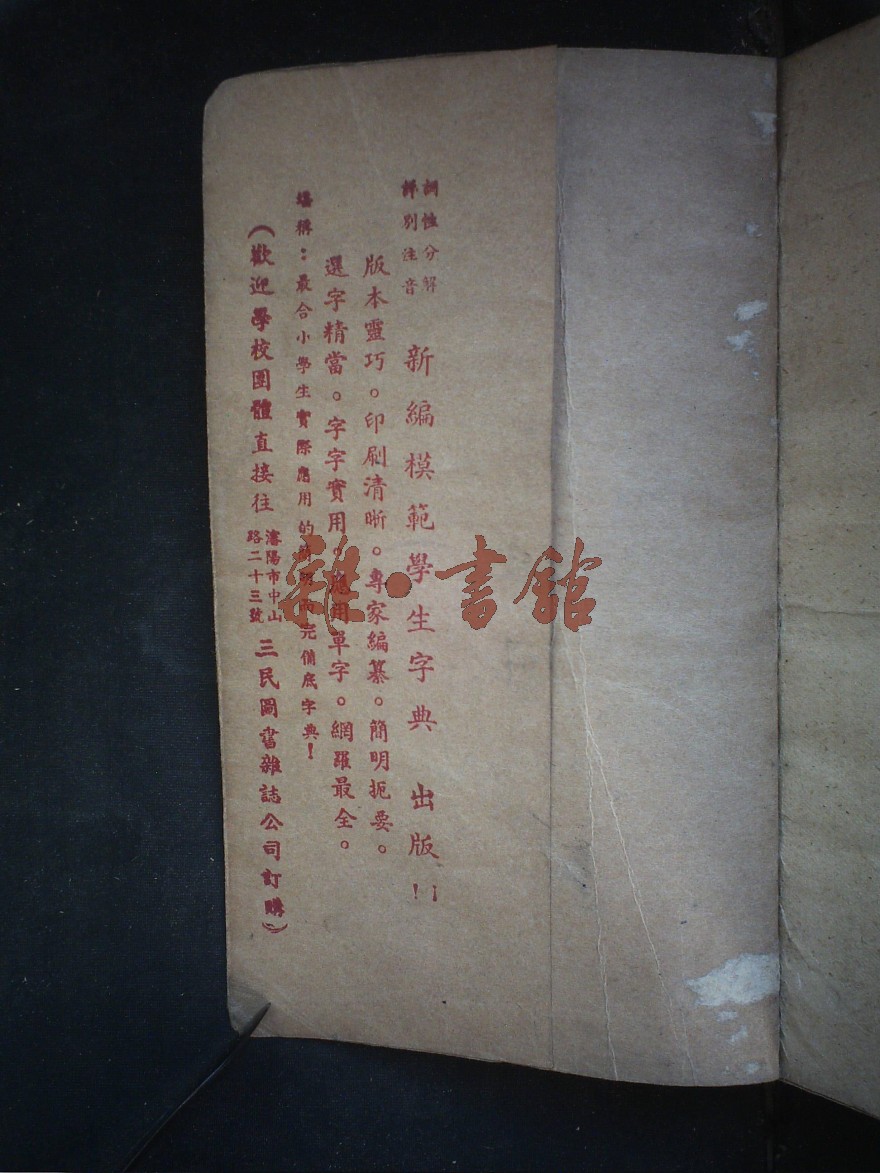 詞性分解
詳別注音
新編模範學生字典 出版!!
版本靈巧。印刷清晰。專家編纂。簡明扼要。
選字精當。字字實用。應用單字。網羅最全。
堪稱:最合小學生實際應用的 完備底字典!
(歡迎學校團體直接往
瀋陽市中山
路二十三號
三民圖書雜誌公司訂購)
雜·書館